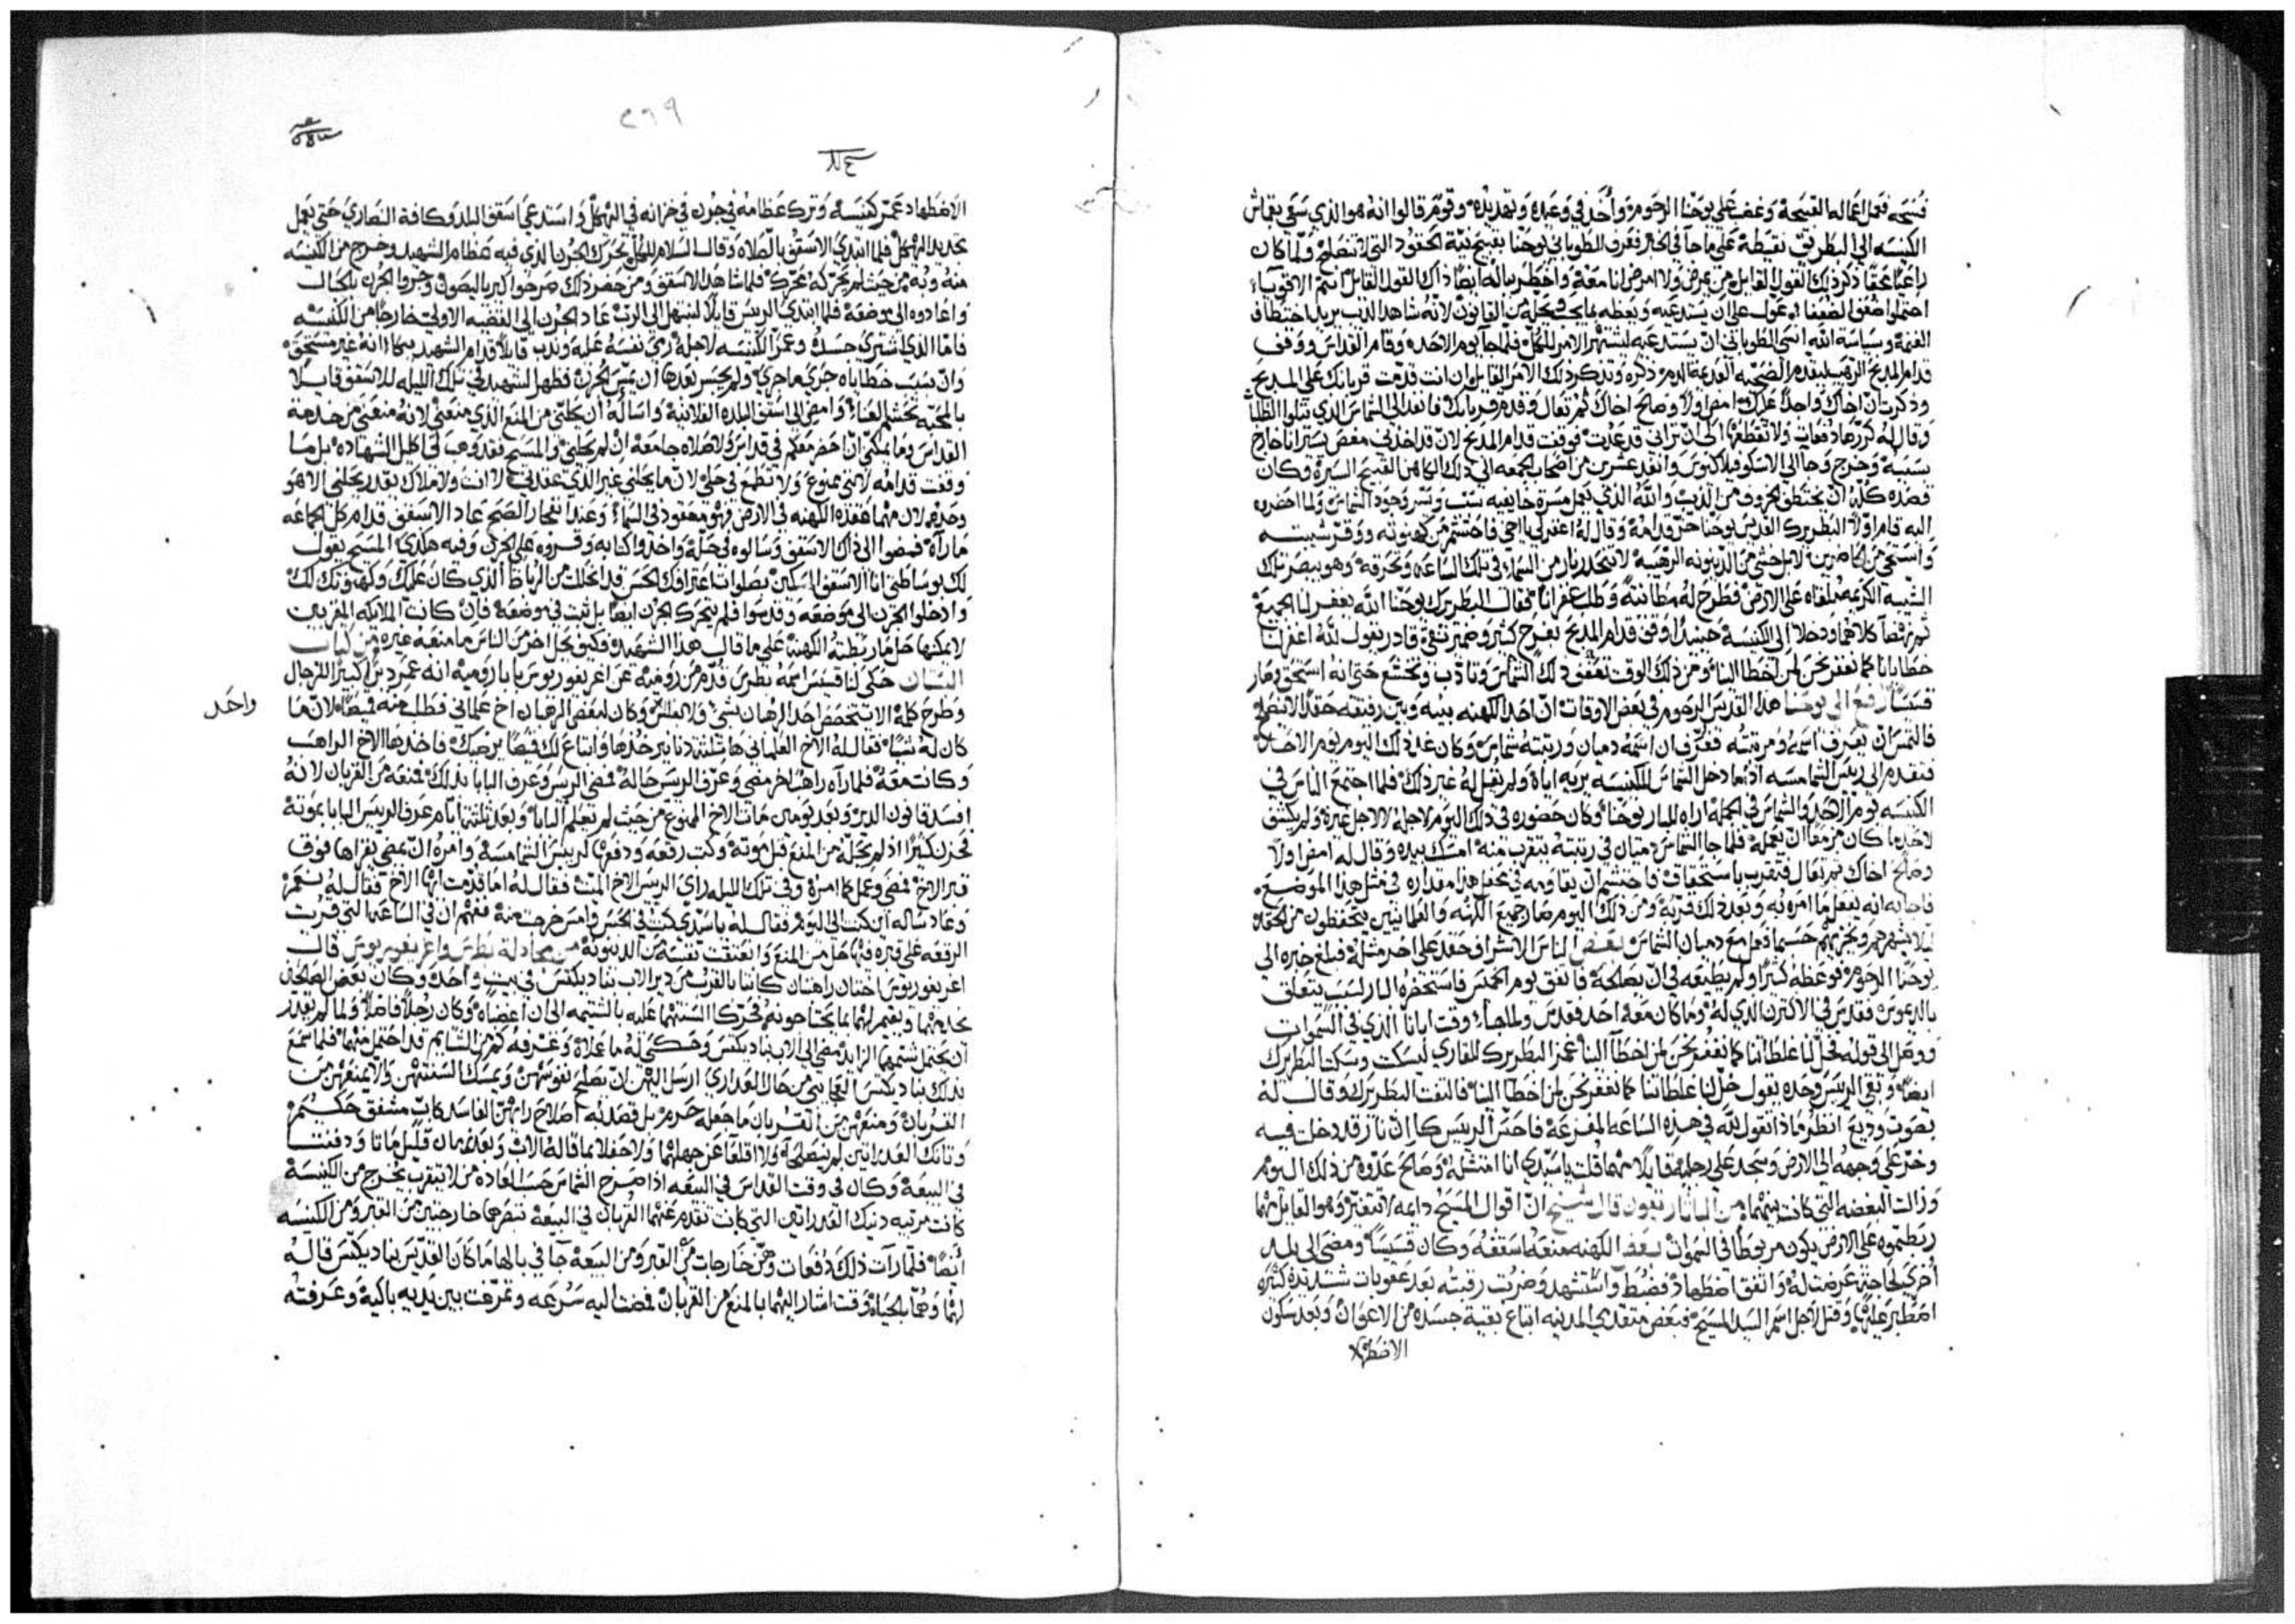 فسحه فعمل اعماله القبيحة وغضب على يوحنا الرحوم واخذ في وعده وتهديده وقوم قالوا انه هو الذي سعى بقماش
الكنيسه الى البطريق نقيطة على ما جآ في الخبر فعرف الطوباني يوحنا بقبيح نية الحقود التي لا تنصلح ولما كان
راعيًا محقًا ذكر ذلك القول القايل من يمرض ولا امرض انا معه واخطر بباله ايضًا ذاك القول القايل انتم الاقويآء
احتملوا ضعف الضعفا وعول على ان يستدعيه ويعظه بما يجب ويحله من القانون لانه شاهد الذيب يريد اختطاف
الغنمة وسياسة الله انسى الطوباني ان يستدعيه ليشتهر الامر للكل فلما جآ يوم الاحد وقام القداس ووقف
قدام المذبح الرهيب ليقدم الضحيه العديمة الدم ذكره وتذكر ذلك الامر القايل ان انت قدمت قربانك على المذبح
وذكرت ان اخاك واجدًا عليك امض اولًا وصالح اخاك ثم تعال وقدم قربانك فانفد الى الشماس الذي يتلوا الطلبات
وقال له كررها دفعات ولا تقطعها الى ان تراني قد عدت فوقفت قدام المذبح لان قد اخذني مغص يسير انا خارج
بسببه وخرج وجا الى الاسكوفيلاكيون وانفد عشرين من اصحاب الجمعه الى ذلك الكاهن القبيح السيرة وكان
قصده كله ان يختطف الخروف من الذيب والله الذي يعمل مسرة خايفيه سبب ويسر وجود الشماس ولما احضره
اليه قام اولًا البطريرك القديس يوحنا خر قدامه وقال له اغفر لي يا اخي فاحتشم من كهنوته ووقر شيبته
واستحى من الحاضرين لا بل خشي من الدينونه الرهيبه لا تنحدر نار من السماء في تلك الساعه وتحرقه وهو يبصر تلك
الشيبه الكريمه ملقاه على الارض فطرح له مطانية وطلب غفرانًا فقال البطريرك يوحنا الله يغفر لنا الجميع
ثم نهضا كلاهما ودخلا الى الكنيسة حينيذ وقف قدام المذبح بفرح كثير وضمير نقي قادر يقول لله اغفر لنا
خطايانا كما نغفر نحن لمن اخطا الينا ومن ذلك الوقت تعفف ذلك الشماس وتادب وتخشع حتى انه استحق وصار
قسيسًا رفع الى يوحنا هذا القديس الرحوم في بعض الاوقات ان احد الكهنه بينه وبين رفيقه حقد لا ينصلح
فالتمس ان يعرف اسمه ومرتبته فعرف ان اسمه دميان ورتبته شماس وكان غد ذلك اليوم يوم الاحد
فتقدم الى ريس الشمامسه اذا ما دخل الشماس للكنيسه يريه اياه ولم يقل له غير ذلك فلما اجتمع الناس في
الكنيسه يوم الاحد والشماس في الجمله اراه للبار يوحنا وكان حضوره في ذلك اليوم لاجله لا لاجل غيره ولم يكشف
لاحد ما كان مزمعًا ان يعمله فلما جا الشماس دميان في رتبته يتقرب منه امسك بيده وقال له امض اولًا
وصالح اخاك ثم تعال فتقرب باستحقاق فاحتشم ان يقاومه في محفل هذا مقداره في مثل هذا الموضع
فاجابه انه يفعل ما امره به وبعد ذلك قربه ومن ذلك اليوم صار جميع الكهنه والعلمانيين يتحفظون من الحقد
ليلا يشهرهم ويخزيهم حسبما فعل مع دميان الشماس بعض الناس الاشراف حقد على اخر مثله فبلغ خبره الى
يوحنا الرحوم فوعظه كثيرًا ولم يطيعه في ان يصالحه فاتفق يوم الخميس فاستحضره البار لسبب يتعلق
بالديموس فقدس في الاكترن الذي له وما كان معه احد فقدس ولما جآء وقت ابانا الذي في السموات
ووصل الى قوله فحل لنا غلطاتنا كما نغفر نحن لمن اخطآ الينا غمز البطريرك للقاري ليسكت وسكت البطريرك
ايضًا وبقي الريس وحده يقول حل لنا غلطاتنا كما نغفر نحن لمن اخطا الينا فالتفت البطريرك وقال له
بصوت وديع انظر ماذا تقول لله في هذه الساعه المفزعة فاحس الريس كان نار قد دخلت فيه
وخر على وجهه الى الارض وسجد على رجليه قايلًا مهما قلت يا سيدي انا امتثله وصالح عدوه من ذلك اليوم
وزالت البغضه التي كانت بينهما من الباتاريقون قال شيخ ان اقوال المسيح دايمه لا تتغير وهو القايل مهما
ربطتموه على الارض يكون مربوطًا في السموات بعض الكهنه منعه اسقفه وكان قسيسًا ومضى الى بلد
اخرى لحاجة عرضت له واتفق اضطهاد فضبط واستشهد وضربت رقبته بعد عقوبات شديدة كثيره
اصطبر عليها وقتل لاجل اسم السيد المسيح فبعض متقدمي المدينه ابتاع بقية جسده من الاعوان وبعد سكون
الاضطهاد
٢٦٩
الاضطهاد عمر كنيسه وترك عظامه في جرن في خزانه في الهيكل واستدعى اسقف البلد وكافة النصارى حتى يعمل
تجديد الهيكل فلما ابتدى الاسقف بالصلاه وقال السلام للكل تحرك الجرن الذي فيه عظام الشهيد وخرج من الكنيسه
منه وبه من حيث لم يحركه محرك فلما شاهد الاسقف ومن حضر ذلك صرخوا كيرياليصون وجروا الجرن بالحبال
واعادوه الى موضعه فلما ابتدى الريس قايلًا لنبتهل الى الرب عاد الجرن الى القضيه الاولى خارجًا من الكنيسه
فاما الذي اشترى جسده وعمر الكنيسه لاجله رمى نفسه عليه وندب قايلًا قدام الشهيد ببكاء انه غير مستحق
وان بسبب خطاياه جرى ما جرى ولم يجسر بعدها ان يمس الجرن فظهر الشهيد في تلك الليله للاسقف قايلًا
بالمحبه تجشم العناء وامضي الى اسقف البلده الفلانية واساله ان يحلني من المنع الذي منعني لانه منعني من خدمة
القداس وما يمكنني ان احضر معكم في قداس ولا صلاه جامعة ان لم يحلني والمسيح فقد وهب لي اكليل الشهاده بل ما
وقفت قدامه لانني ممنوع ولا تطمع في حلي لان ما يحلني غير الذي عقدني لا انت ولا ملاك يقدر يحلني الا هو
وحده لان مهما عقده الكهنه في الارض فهو معقود في السماء وعند انفجار الصبح عاد الاسقف قدام كل الجماعه
ما رآه فمضوا الى ذاك الاسقف وسالوه في حله واخذوا كتابه وقروه على الجرن وفيه هكذى المسيح يقول
لك بوساطتي انا الاسقف المسكين بصلوات اعترافك الحسن قد انحللت من الرباط الذي كان عليك وكهنوتك لك
وادخلوا الجرن الى موضعه وقدسوا فلم يتحرك الجرن ايضًا بل ثبت في موضعه فان كانت الملايكه المقربين
لا يمكنها حل ما ربطته الكهنة على ما قال هذا الشهيد وكيف يحل اخر من الناس ما منعه غيره من كتاب
البستان حكى لنا قسيس اسمه بطرس قدم من رومية عن اغريغوريوس بابا رومية انه عمر ديرًا كبيرًا للرجال
وطرح كلمة الا يتخصص احد الرهبان بشي ولا بفلس واحد وكان لبعض الرهبان اخ علماني فطلب منه قميصًا لان ما
كان له شيًا فقال له الاخ العلماني ها ثلثة دنانير خذها وابتاع لك قميصًا يرضيك فاخذها الاخ الراهب
وكانت معه فلما رآه راهب اخر مضى وعرف الريس حاله فمضى الريس وعرف البابا بذلك فمنعه من القربان لانه
افسد قانون الدير وبعد يومين مات الاخ الممنوع من حيث لم يعلم البابا وبعد ثلثة ايام عرف الريس البابا بموته
فحزن كثيرًا اذ لم يحله من المنع قبل موته وكتب رقعه ودفعها لريس الشمامسه وامره ان يمضي يقراها فوق
قبر الاخ فمضى وعمل كما امره وفي تلك الليله راى الريس الاخ الميت فقال له اما قد مت ايها الاخ فقال له نعم
وعاد ساله اين كنت الى اليوم فقال له يا سيدي كنت في الحبس وامس خرجت منه ففهم ان في الساعه التي قريت
الرقعه على قبره فيها حل من المنع وانعتقت نفسه من الدينونة من مجادلة بطرس واغريغوريوس قال
اغريغوريوس اختان راهبتان كانتا بالقرب من دير الاب بناديكتس في بيت واحد وكان بعض الصالحين
يخدمهما ويقيم لهما بما يحتاجونه فحركا السنتهما عليه بالشتيمه الى ان اغضباه وكان رجلًا فاضلًا ولما لم يقدر
ان يحتمل شتمهما الزايد مضى الى الاب بناديكتس وحكى له ما عملاه وعرفه كم من الشتايم قد احتمل منهما فلما سمع
بذلك بناديكتس العجايبي من حال العذارى ارسل اليهن ان يصلح نفوسهن ويمسك السنتهن والا يمنعهن من
القربان ومنعهن من القربان ما جعله حرم بل قصد به اصلاح رايهن الفاسد كاب مشفق حكيم
وتانك العذراتين لم ينصلحا ولا اقلعا عن جهلهما ولا حفلا بما قاله الاب وبعد زمان قليل ماتا ودفنتا
في البيعة وكان في وقت القداس في البيعه اذا صرخ الشماس حسب العاده من لا يتقرب يخرج من الكنيسة
كانت مربيه دينك العذراتين التي كانت تقدم عنهما القربان في البيعة تبصرهما خارجتين من القبر ومن الكنيسه
أيضًا فلما رآت ذلك دفعات وهن خارجات من القبر ومن البيعه جآ في بالها ما كان القديس بناديكتس قاله
لهما وهما بالحياه وقت اشار اليهما بالمنع من القربان فمضت اليه سرعه وتمرغت بين يديه باكية وعرفته
واحد